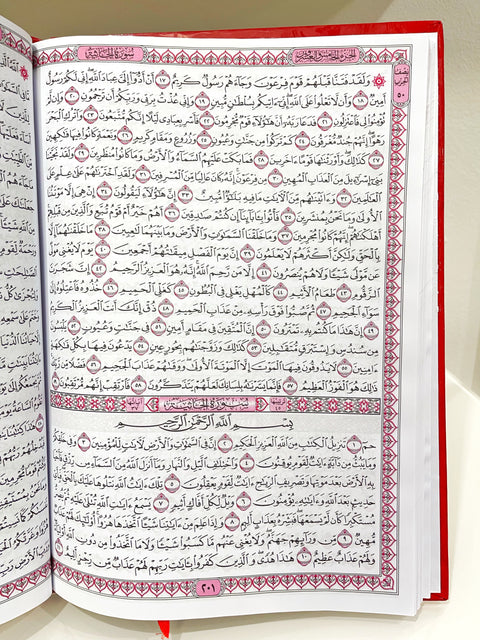 سورة الجاثية
الجزء الخامس والعشرون
نصف الحزب ٥٠
۞ وَلَقَدْ فَتَنَّا قَبْلَهُمْ قَوْمَ فِرْعَوْنَ وَجَاءَهُمْ رَسُولٌ كَرِيمٌ ١٧ أَنْ أَدُّوا إِلَيَّ عِبَادَ اللَّهِ إِنِّي لَكُمْ رَسُولٌ
أَمِينٌ ١٨ وَأَن لَّا تَعْلُوا عَلَى اللَّهِ إِنِّي ءَاتِيكُم بِسُلْطَٰنٍ مُّبِينٍ ١٩ وَإِنِّي عُذْتُ بِرَبِّي وَرَبِّكُمْ أَن تَرْجُمُونِ ٢٠ وَإِن لَّمْ
تُؤْمِنُوا لِي فَاعْتَزِلُونِ ٢١ فَدَعَا رَبَّهُ أَنَّ هَٰؤُلَاءِ قَوْمٌ مُّجْرِمُونَ ٢٢ فَأَسْرِ بِعِبَادِي لَيْلًا إِنَّكُم مُّتَّبَعُونَ ٢٣ وَاتْرُكِ الْبَحْرَ
رَهْوًا إِنَّهُمْ جُندٌ مُّغْرَقُونَ ٢٤ كَمْ تَرَكُوا مِن جَنَّٰتٍ وَعُيُونٍ ٢٥ وَزُرُوعٍ وَمَقَامٍ كَرِيمٍ ٢٦ وَنَعْمَةٍ كَانُوا فِيهَا فَٰكِهِينَ
٢٧ كَذَٰلِكَ وَأَوْرَثْنَٰهَا قَوْمًا ءَاخَرِينَ ٢٨ فَمَا بَكَتْ عَلَيْهِمُ السَّمَاءُ وَالْأَرْضُ وَمَا كَانُوا مُنظَرِينَ ٢٩ وَلَقَدْ نَجَّيْنَا
بَنِي إِسْرَٰءِيلَ مِنَ الْعَذَابِ الْمُهِينِ ٣٠ مِن فِرْعَوْنَ إِنَّهُ كَانَ عَالِيًا مِّنَ الْمُسْرِفِينَ ٣١ وَلَقَدِ اخْتَرْنَٰهُمْ عَلَىٰ عِلْمٍ عَلَى
الْعَٰلَمِينَ ٣٢ وَءَاتَيْنَٰهُم مِّنَ الْءَايَٰتِ مَا فِيهِ بَلَٰؤٌا مُّبِينٌ ٣٣ إِنَّ هَٰؤُلَاءِ لَيَقُولُونَ ٣٤ إِنْ هِيَ إِلَّا مَوْتَتُنَا
الْأُولَىٰ وَمَا نَحْنُ بِمُنشَرِينَ ٣٥ فَأْتُوا بِـَٔابَائِنَا إِن كُنتُمْ صَٰدِقِينَ ٣٦ أَهُمْ خَيْرٌ أَمْ قَوْمُ تُبَّعٍ وَالَّذِينَ مِن قَبْلِهِمْ
أَهْلَكْنَٰهُمْ إِنَّهُمْ كَانُوا مُجْرِمِينَ ٣٧ وَمَا خَلَقْنَا السَّمَٰوَٰتِ وَالْأَرْضَ وَمَا بَيْنَهُمَا لَٰعِبِينَ ٣٨ مَا خَلَقْنَٰهُمَا إِلَّا
بِالْحَقِّ وَلَٰكِنَّ أَكْثَرَهُمْ لَا يَعْلَمُونَ ٣٩ إِنَّ يَوْمَ الْفَصْلِ مِيقَٰتُهُمْ أَجْمَعِينَ ٤٠ يَوْمَ لَا يُغْنِي مَوْلًى
عَن مَّوْلًى شَيْـًٔا وَلَا هُمْ يُنصَرُونَ ٤١ إِلَّا مَن رَّحِمَ اللَّهُ إِنَّهُ هُوَ الْعَزِيزُ الرَّحِيمُ ٤٢ إِنَّ شَجَرَتَ
الزَّقُّومِ ٤٣ طَعَامُ الْأَثِيمِ ٤٤ كَالْمُهْلِ يَغْلِي فِي الْبُطُونِ ٤٥ كَغَلْيِ الْحَمِيمِ ٤٦ خُذُوهُ فَاعْتِلُوهُ إِلَىٰ
سَوَاءِ الْجَحِيمِ ٤٧ ثُمَّ صُبُّوا فَوْقَ رَأْسِهِ مِنْ عَذَابِ الْحَمِيمِ ٤٨ ذُقْ إِنَّكَ أَنتَ الْعَزِيزُ الْكَرِيمُ
٤٩ إِنَّ هَٰذَا مَا كُنتُم بِهِ تَمْتَرُونَ ٥٠ إِنَّ الْمُتَّقِينَ فِي مَقَامٍ أَمِينٍ ٥١ فِي جَنَّٰتٍ وَعُيُونٍ ٥٢ يَلْبَسُونَ
مِن سُندُسٍ وَإِسْتَبْرَقٍ مُّتَقَٰبِلِينَ ٥٣ كَذَٰلِكَ وَزَوَّجْنَٰهُم بِحُورٍ عِينٍ ٥٤ يَدْعُونَ فِيهَا بِكُلِّ فَٰكِهَةٍ
ءَامِنِينَ ٥٥ لَا يَذُوقُونَ فِيهَا الْمَوْتَ إِلَّا الْمَوْتَةَ الْأُولَىٰ وَوَقَىٰهُمْ عَذَابَ الْجَحِيمِ ٥٦ فَضْلًا مِّن رَّبِّكَ
ذَٰلِكَ هُوَ الْفَوْزُ الْعَظِيمُ ٥٧ فَإِنَّمَا يَسَّرْنَٰهُ بِلِسَانِكَ لَعَلَّهُمْ يَتَذَكَّرُونَ ٥٨ فَارْتَقِبْ إِنَّهُم مُّرْتَقِبُونَ ٥٩
سورة الجاثية
بِسْمِ اللَّهِ الرَّحْمَٰنِ الرَّحِيمِ
حمٓ ١ تَنزِيلُ الْكِتَٰبِ مِنَ اللَّهِ الْعَزِيزِ الْحَكِيمِ ٢ إِنَّ فِي السَّمَٰوَٰتِ وَالْأَرْضِ لَءَايَٰتٍ لِّلْمُؤْمِنِينَ ٣ وَفِي خَلْقِكُمْ
وَمَا يَبُثُّ مِن دَابَّةٍ ءَايَٰتٌ لِّقَوْمٍ يُوقِنُونَ ٤ وَاخْتِلَٰفِ الَّيْلِ وَالنَّهَارِ وَمَا أَنزَلَ اللَّهُ مِنَ السَّمَاءِ مِن رِّزْقٍ فَأَحْيَا
بِهِ الْأَرْضَ بَعْدَ مَوْتِهَا وَتَصْرِيفِ الرِّيَٰحِ ءَايَٰتٌ لِّقَوْمٍ يَعْقِلُونَ ٥ تِلْكَ ءَايَٰتُ اللَّهِ نَتْلُوهَا عَلَيْكَ بِالْحَقِّ فَبِأَيِّ
حَدِيثٍ بَعْدَ اللَّهِ وَءَايَٰتِهِ يُؤْمِنُونَ ٦ وَيْلٌ لِّكُلِّ أَفَّاكٍ أَثِيمٍ ٧ يَسْمَعُ ءَايَٰتِ اللَّهِ تُتْلَىٰ عَلَيْهِ ثُمَّ يُصِرُّ
مُسْتَكْبِرًا كَأَن لَّمْ يَسْمَعْهَا فَبَشِّرْهُ بِعَذَابٍ أَلِيمٍ ٨ وَإِذَا عَلِمَ مِنْ ءَايَٰتِنَا شَيْـًٔا اتَّخَذَهَا هُزُوًا أُولَٰئِكَ لَهُمْ عَذَابٌ
مُّهِينٌ ٩ مِّن وَرَائِهِمْ جَهَنَّمُ وَلَا يُغْنِي عَنْهُم مَّا كَسَبُوا شَيْـًٔا وَلَا مَا اتَّخَذُوا مِن دُونِ اللَّهِ أَوْلِيَاءَ
وَلَهُمْ عَذَابٌ عَظِيمٌ ١٠ هَٰذَا هُدًى وَالَّذِينَ كَفَرُوا بِـَٔايَٰتِ رَبِّهِمْ لَهُمْ عَذَابٌ مِّن رِّجْزٍ أَلِيمٌ ١١
٢٠١